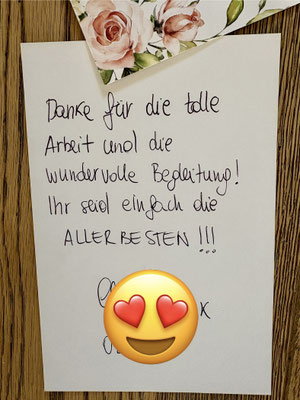 Danke für die tolle
Arbeit und die
wundervolle Begleitung!
Ihr seid einfach die
ALLERBESTEN!!!